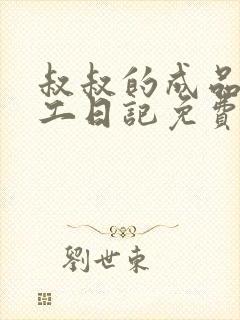 叔叔的成品
工日記免費
劉世東